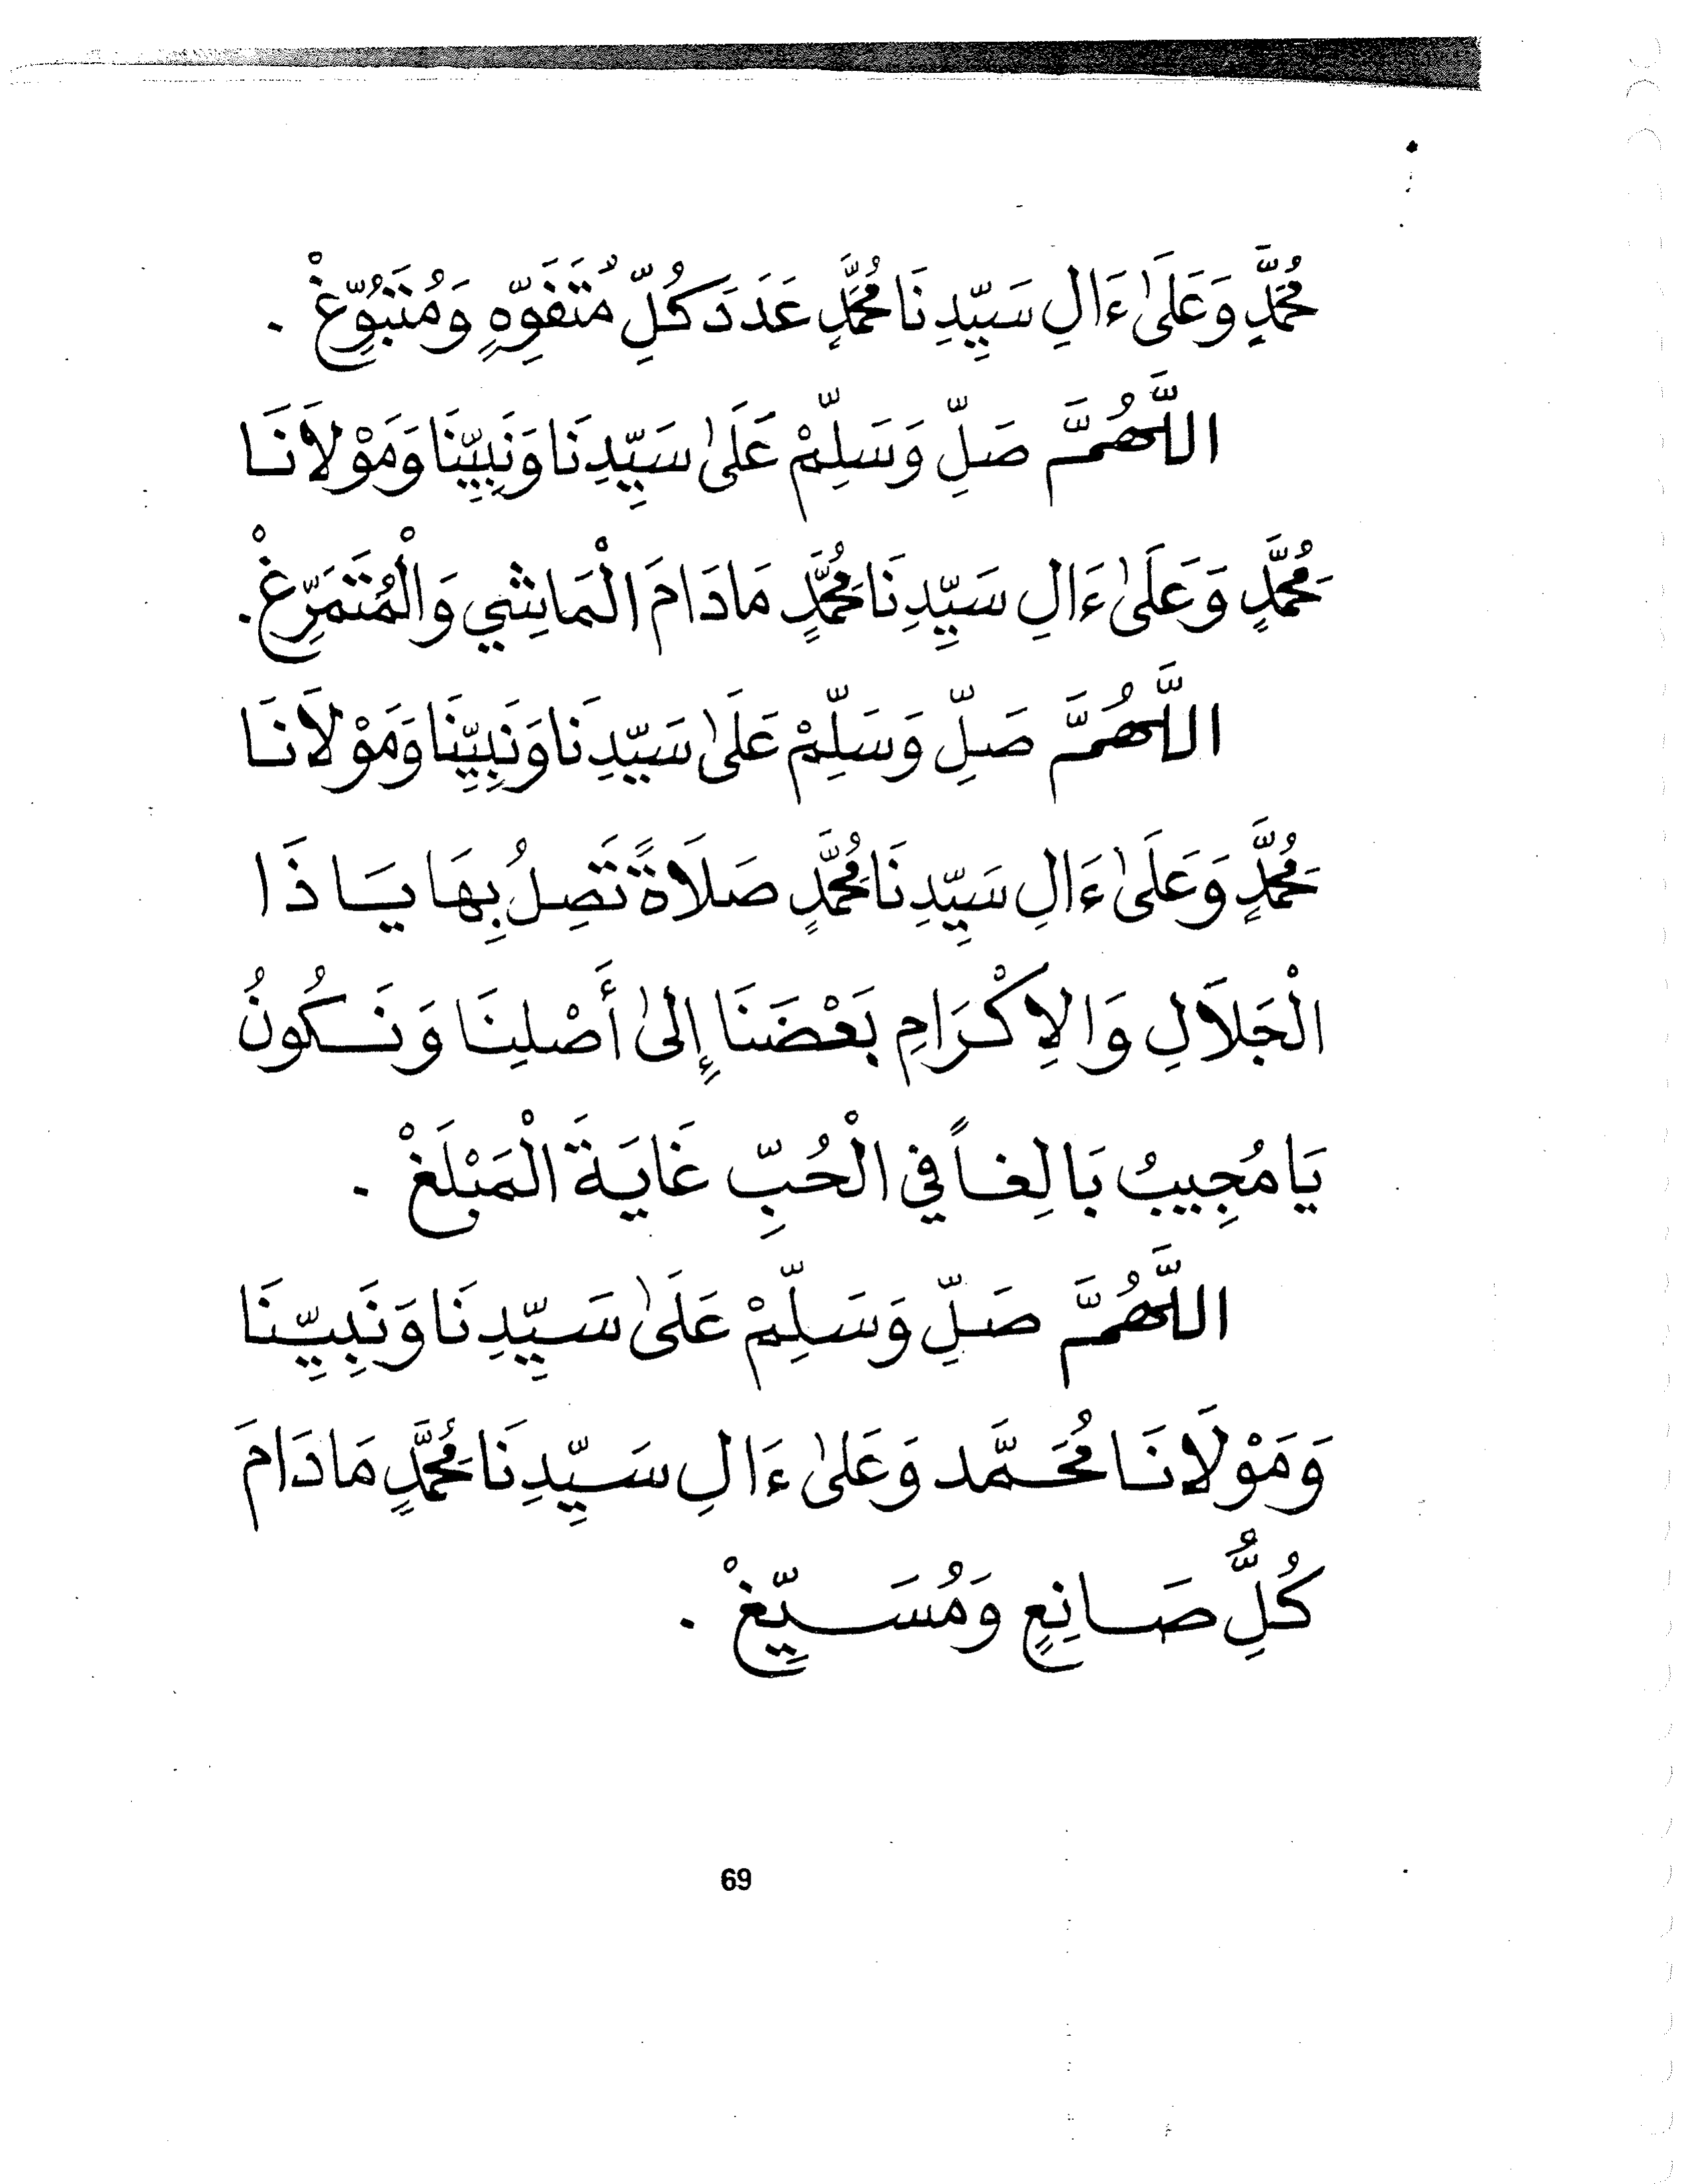 مُحَمَّدٍ وَعَلَىٰ ءَالِ سَيِّدِنَا مُحَمَّدٍ عَدَدَ كُلِّ مُتَفَوِّهٍ وَمُتَبَوِّغْ .
اللَّهُمَّ صَلِّ وَسَلِّمْ عَلَىٰ سَيِّدِنَا وَنَبِيِّنَا وَمَوْلاَنَا
مُحَمَّدٍ وَعَلَىٰ ءَالِ سَيِّدِنَا مُحَمَّدٍ مَادَامَ الْمَاشِي وَالْمُتَمَرِّغْ.
اللَّهُمَّ صَلِّ وَسَلِّمْ عَلَىٰ سَيِّدِنَا وَنَبِيِّنَا وَمَوْلاَنَا
مُحَمَّدٍ وَعَلَىٰ ءَالِ سَيِّدِنَا مُحَمَّدٍ صَلَاةً تَصِلُ بِهَا يَا ذَا
الْجَلاَلِ وَالاِكْرَامِ بَعْضَنَا إِلىٰ أَصْلِنَا وَنَكُونُ
يَا مُجِيبُ بَالِغاً في الْحُبِّ غَايَةَ الْمَبْلَغْ .
اللَّهُمَّ صَلِّ وَسَلِّمْ عَلَىٰ سَيِّدِنَا وَنَبِيِّنَا
وَمَوْلاَنَا مُحَمَّد وَعَلىٰ ءَالِ سَيِّدِنَا مُحَمَّدٍ مَادَامَ
كُلُّ صَانِعٍ وَمُسَيِّغْ .
69